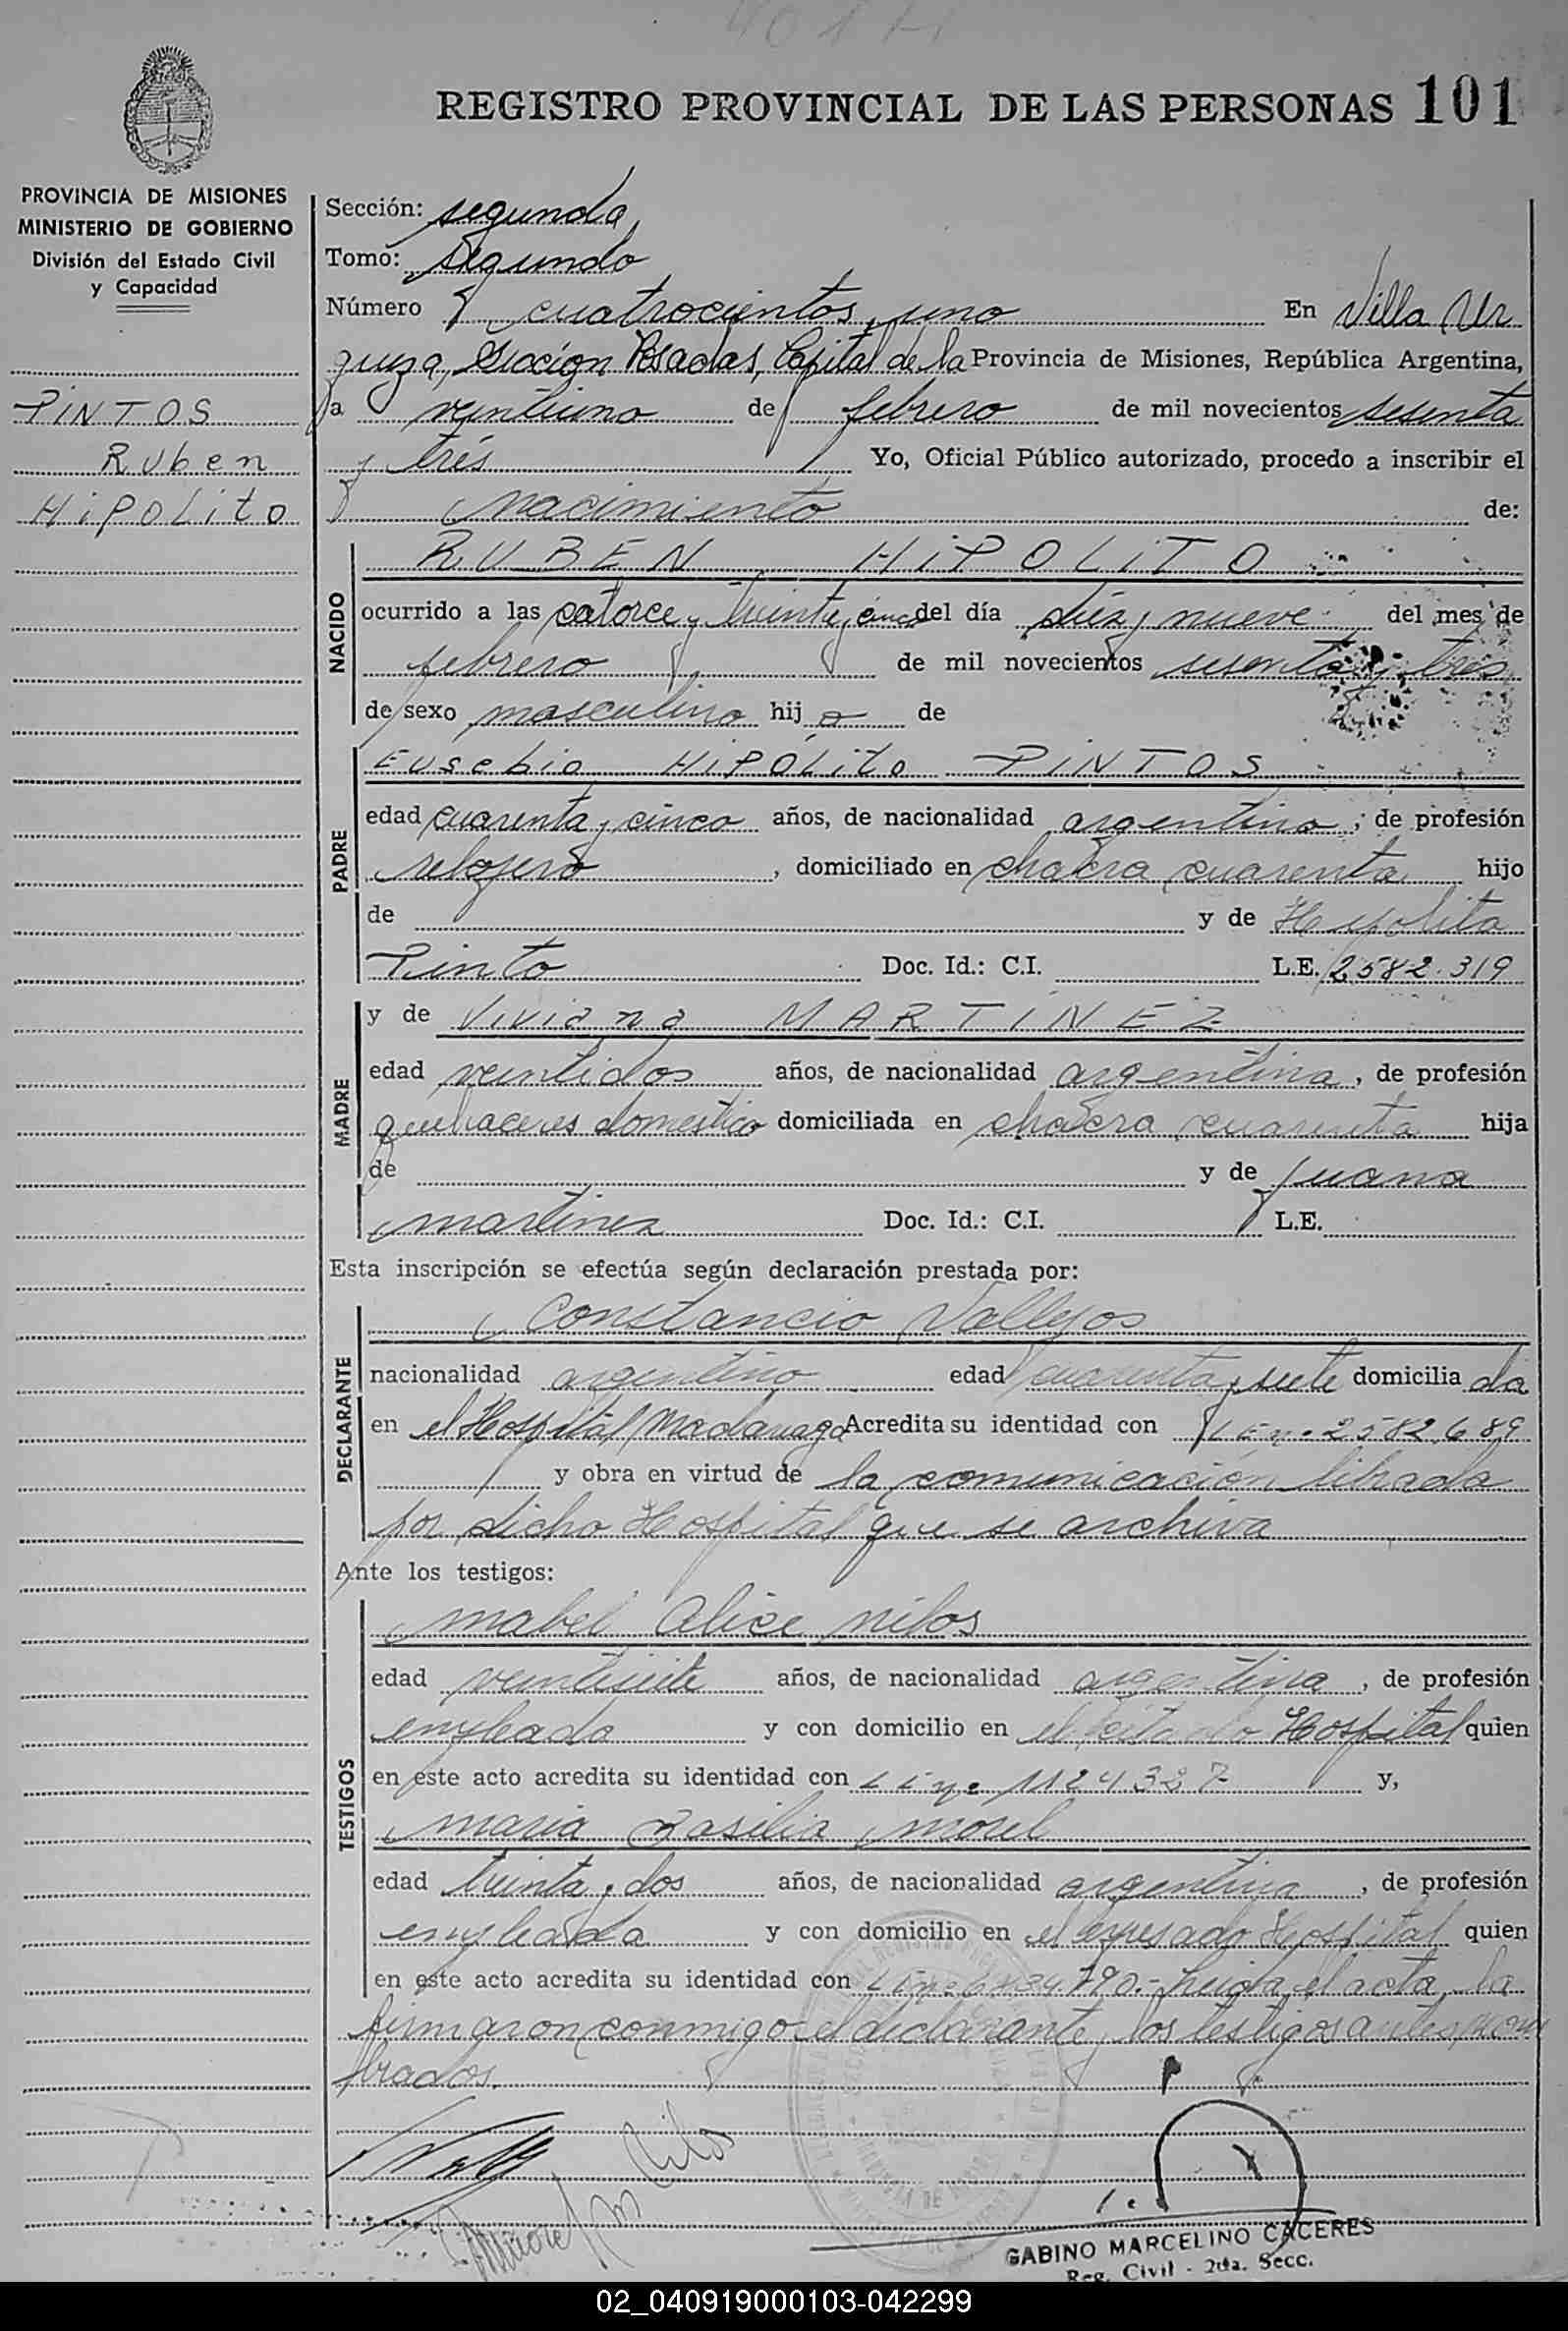 REGISTRO PROVINCIAL DE LAS PERSONAS 101
PROVINCIA DE MISIONES
MINISTERIO DE GOBIERNO
División del Estado Civil
y Capacidad
PINTOS
Ruben
HiPOLito
Sección: segunda
Tomo: Segundo
Número cuatrocientos uno En Villa Ur
quiza, Sección Posadas, Capital de la Provincia de Misiones, República Argentina,
a veintiuno de febrero de mil novecientos sesenta
y trés Yo, Oficial Público autorizado, procedo a inscribir el
nacimiento de:
NACIDO
RUBEN HiPOLiTO
ocurrido a las catorce y treinta y cinco del día diez y nueve del mes de
febrero de mil novecientos sesenta y tres
de sexo masculino hij o de
PADRE
Eusebio HiPÓLito PiNTOS
edad cuarenta y cinco años, de nacionalidad argentino, de profesión
relojero, domiciliado en chacra cuarenta hijo
de y de Hipolita
Pinto Doc. Id.: C.I. L.E. 2582.319
MADRE
y de Viviana MARTINEZ
edad veintidos años, de nacionalidad argentina, de profesión
quehaceres domestico domiciliada en chacra cuarenta hija
de y de Juana
martinez Doc. Id.: C.I. L.E.
Esta inscripción se efectúa según declaración prestada por:
DECLARANTE
Constancio Vallejos
nacionalidad argentino edad cuarenta y siete domicilia do
en el Hospital Madariaga Acredita su identidad con L E nº 2582.689
y obra en virtud de la comunicación librada
por dicho Hospital que se archiva
Ante los testigos:
TESTIGOS
mabel Alice
edad veintisiete años, de nacionalidad argentina, de profesión
empleada y con domicilio en el citado Hospital quien
en este acto acredita su identidad con L E nº y,
maria Basilia morel
edad treinta y dos años, de nacionalidad argentina, de profesión
empleada y con domicilio en el expresado Hospital quien
en este acto acredita su identidad con L E nº Leida el acta, la
firmaron conmigo el declarante y los testigos antes nom
brados.
GABINO MARCELINO CÁCERES
Reg. Civil - 2da. Secc.
02_040919000103-042299